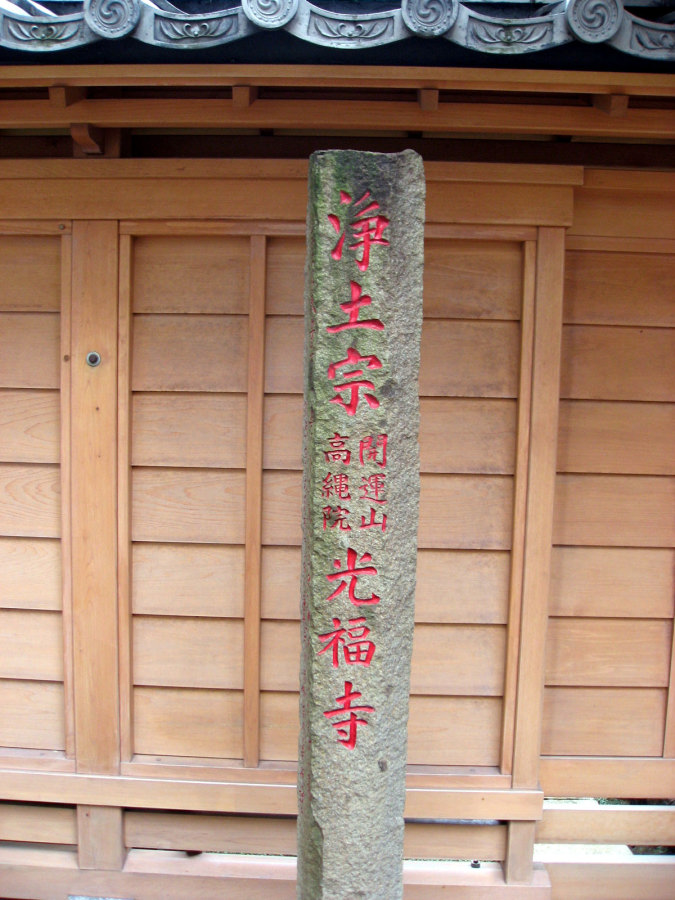 浄土宗
開運山
高縄院
光福寺